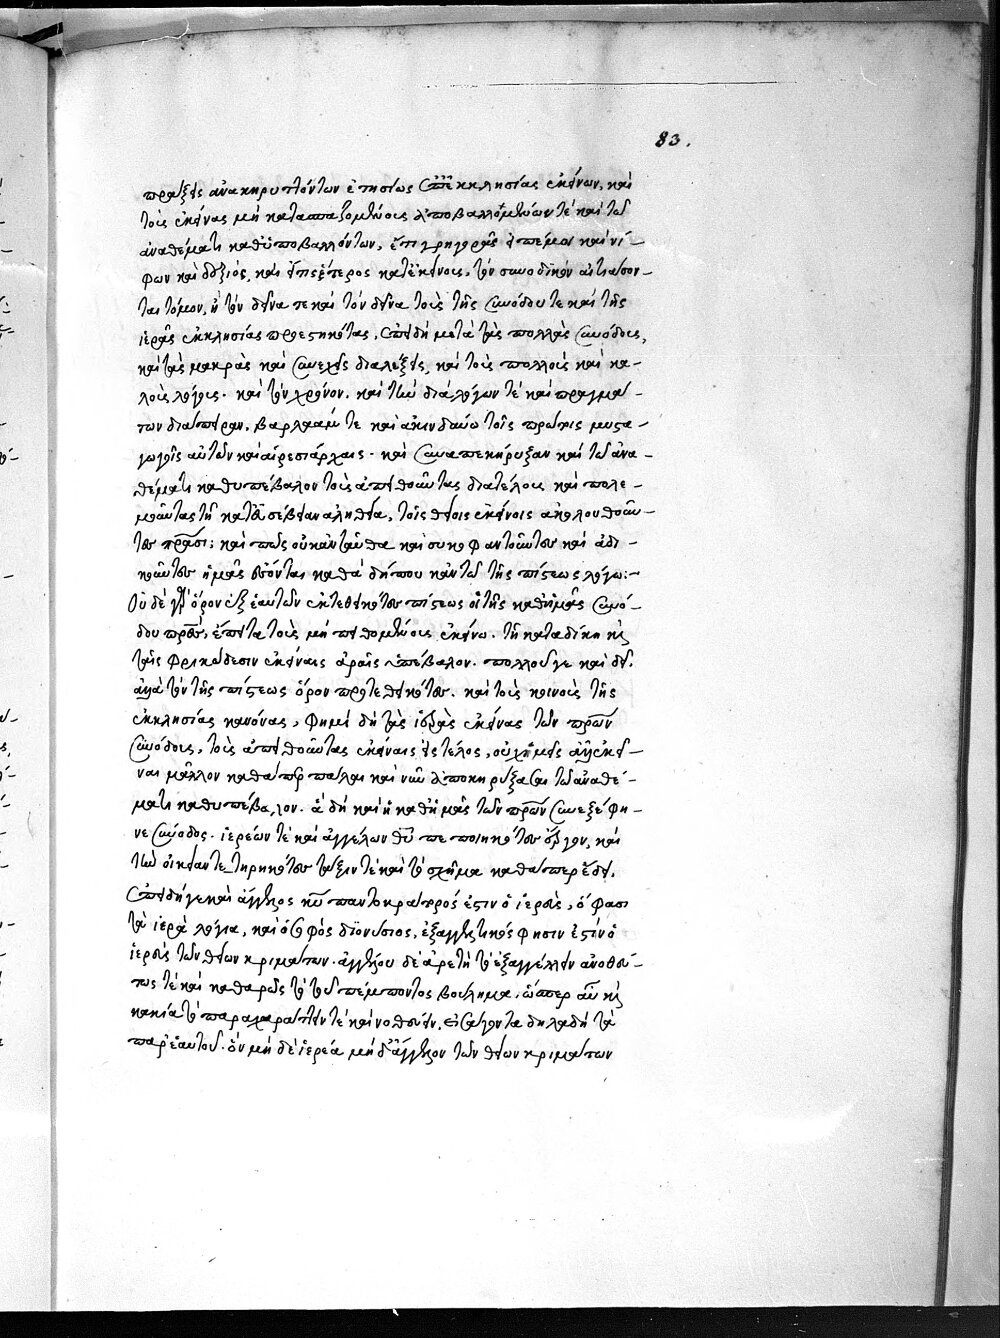 83.
πράξεις ἀνακηρυττόντων ἐτησίως ἐπ' ἐκκλησίας ἐκείνων, καὶ
τοὺς ἐκείνας μὴ κατασπαζομένους ἀποβαλλομένων τὲ καὶ τῶ
ἀναθέματι καθυποβαλλόντων,
φων καὶ δεξιὸς, καὶ κατ' ἐκείνοις, τὸν συνοδικὸν αἰτιάσον-
ται τόμον, ἢ τὸν δεῖνα τε καὶ τὸν δεῖνα τοὺς τῆς συνόδου τε καὶ τῆς
ἱερᾶς ἐκκλησίας προεστηκότας, ἐπειδὴ μετὰ τὰς πολλὰς συνόδους,
καὶ τὰς μακρὰς καὶ συνεχεῖς διαλέξεις, καὶ τοὺς πολλοὺς καὶ κα-
λοὺς λόγους. καὶ τὸν χρόνον. καὶ τὴν διὰ λόγων τὲ καὶ πραγμά-
των διάπειραν, βαρλαάμ τε καὶ ἀκινδύνω τοῖς πρώτοις μυστα-
γωγοῖς αὐτῶν καὶ αἱρεσιάρχαις. καὶ συναπεκήρυξαν καὶ τῶ ἀνα-
θέματι καθυπέβαλον τοὺς ἀπειθοῦντας διατέλους καὶ πολε-
μοῦντας τῆ κατ' εὐσέβειαν ἀληθεία, τοῖς θείοις ἐκείνοις ἀκολουθοῦν-
τες πράσι; καὶ πῶς οὐκ ἀνταῦθα καὶ συκοφαντοῦντες καὶ ἀδι-
κοῦντες ἡμᾶς καθά δήπου κἀν τῶ τῆς πίστεως λόγω:-
Οὐδὲ γὰρ ὅρον ἐξ ἑαυτῶν ἐκτεθεικότες πίστεως οἱ τῆς καθ' ἡμᾶς συνό-
δου πρές, ἔπειτα τοὺς μὴ πειθομένους ἐκείνω. τῆ καταδίκη κ
ταῖς φρικώδεσιν ἐκείναις ἀραῖς ὑπέβαλον. πολλοῦ γε καὶ δεῖ.
ἀλλὰ τὸν τῆς πίστεως ὅρον προτεθεικότες. καὶ τοὺς κοινοὺς τῆς
ἐκκλησίας κανόνας, φημὶ δὴ τὰς ἱερὰς ἐκείνας τῶν πρων
συνόδους, τοὺς ἀπειθοῦντας ἐκείναις εἰς τέλος, οὐχ ἡμεῖς ἀλλ' ἐκεῖ-
ναι μᾶλλον καθάπερ πάλαι καὶ νῦν ἀποκηρύξασαι τῶ ἀναθέ-
ματι καθυπέβαλον. ἃ δὴ καὶ ἡ καθ' ἡμᾶς τῶν πρων συνεξέφη-
νε σύνοδος. ἱερέων τὲ καὶ ἀγγέλων θυ πεποιηκότες ἔργον, καὶ
τὴν οἰκείαν τετηρηκότες τάξιν τὲ καὶ τὸ σχῆμα καθάπερ ἔδει.
ἐπειδή γε καὶ ἄγγελος κυ παντοκράτορός ἐστιν ὁ ἱερεὺς, ὥς φασι
τὰ ἱερὰ λόγια, καὶ ὁ σοφὸς διονύσιος, ἐξαγγελτικός φησιν ἐστὶν ὁ
ἱερεὺς τῶν θείων κριμάτων. ἀγγέλου δὲ ἀρετὴ τὸ ἐξαγγέλλειν ἀνοθεύ-
τως τὲ καὶ καθαρῶς τὸ τοῦ πέμποντος βούλημα, ὥσπερ αὖ κ
κακία τὸ παραχαράττειν τὲ καὶ νοθεύειν, εἰσάγοντα δηλαδὴ τὰ
παρ' ἑαυτοῦ. ὃν μὴ δὲ ἱερέα μὴ δ' ἄγγελον τῶν θείων κριμάτων